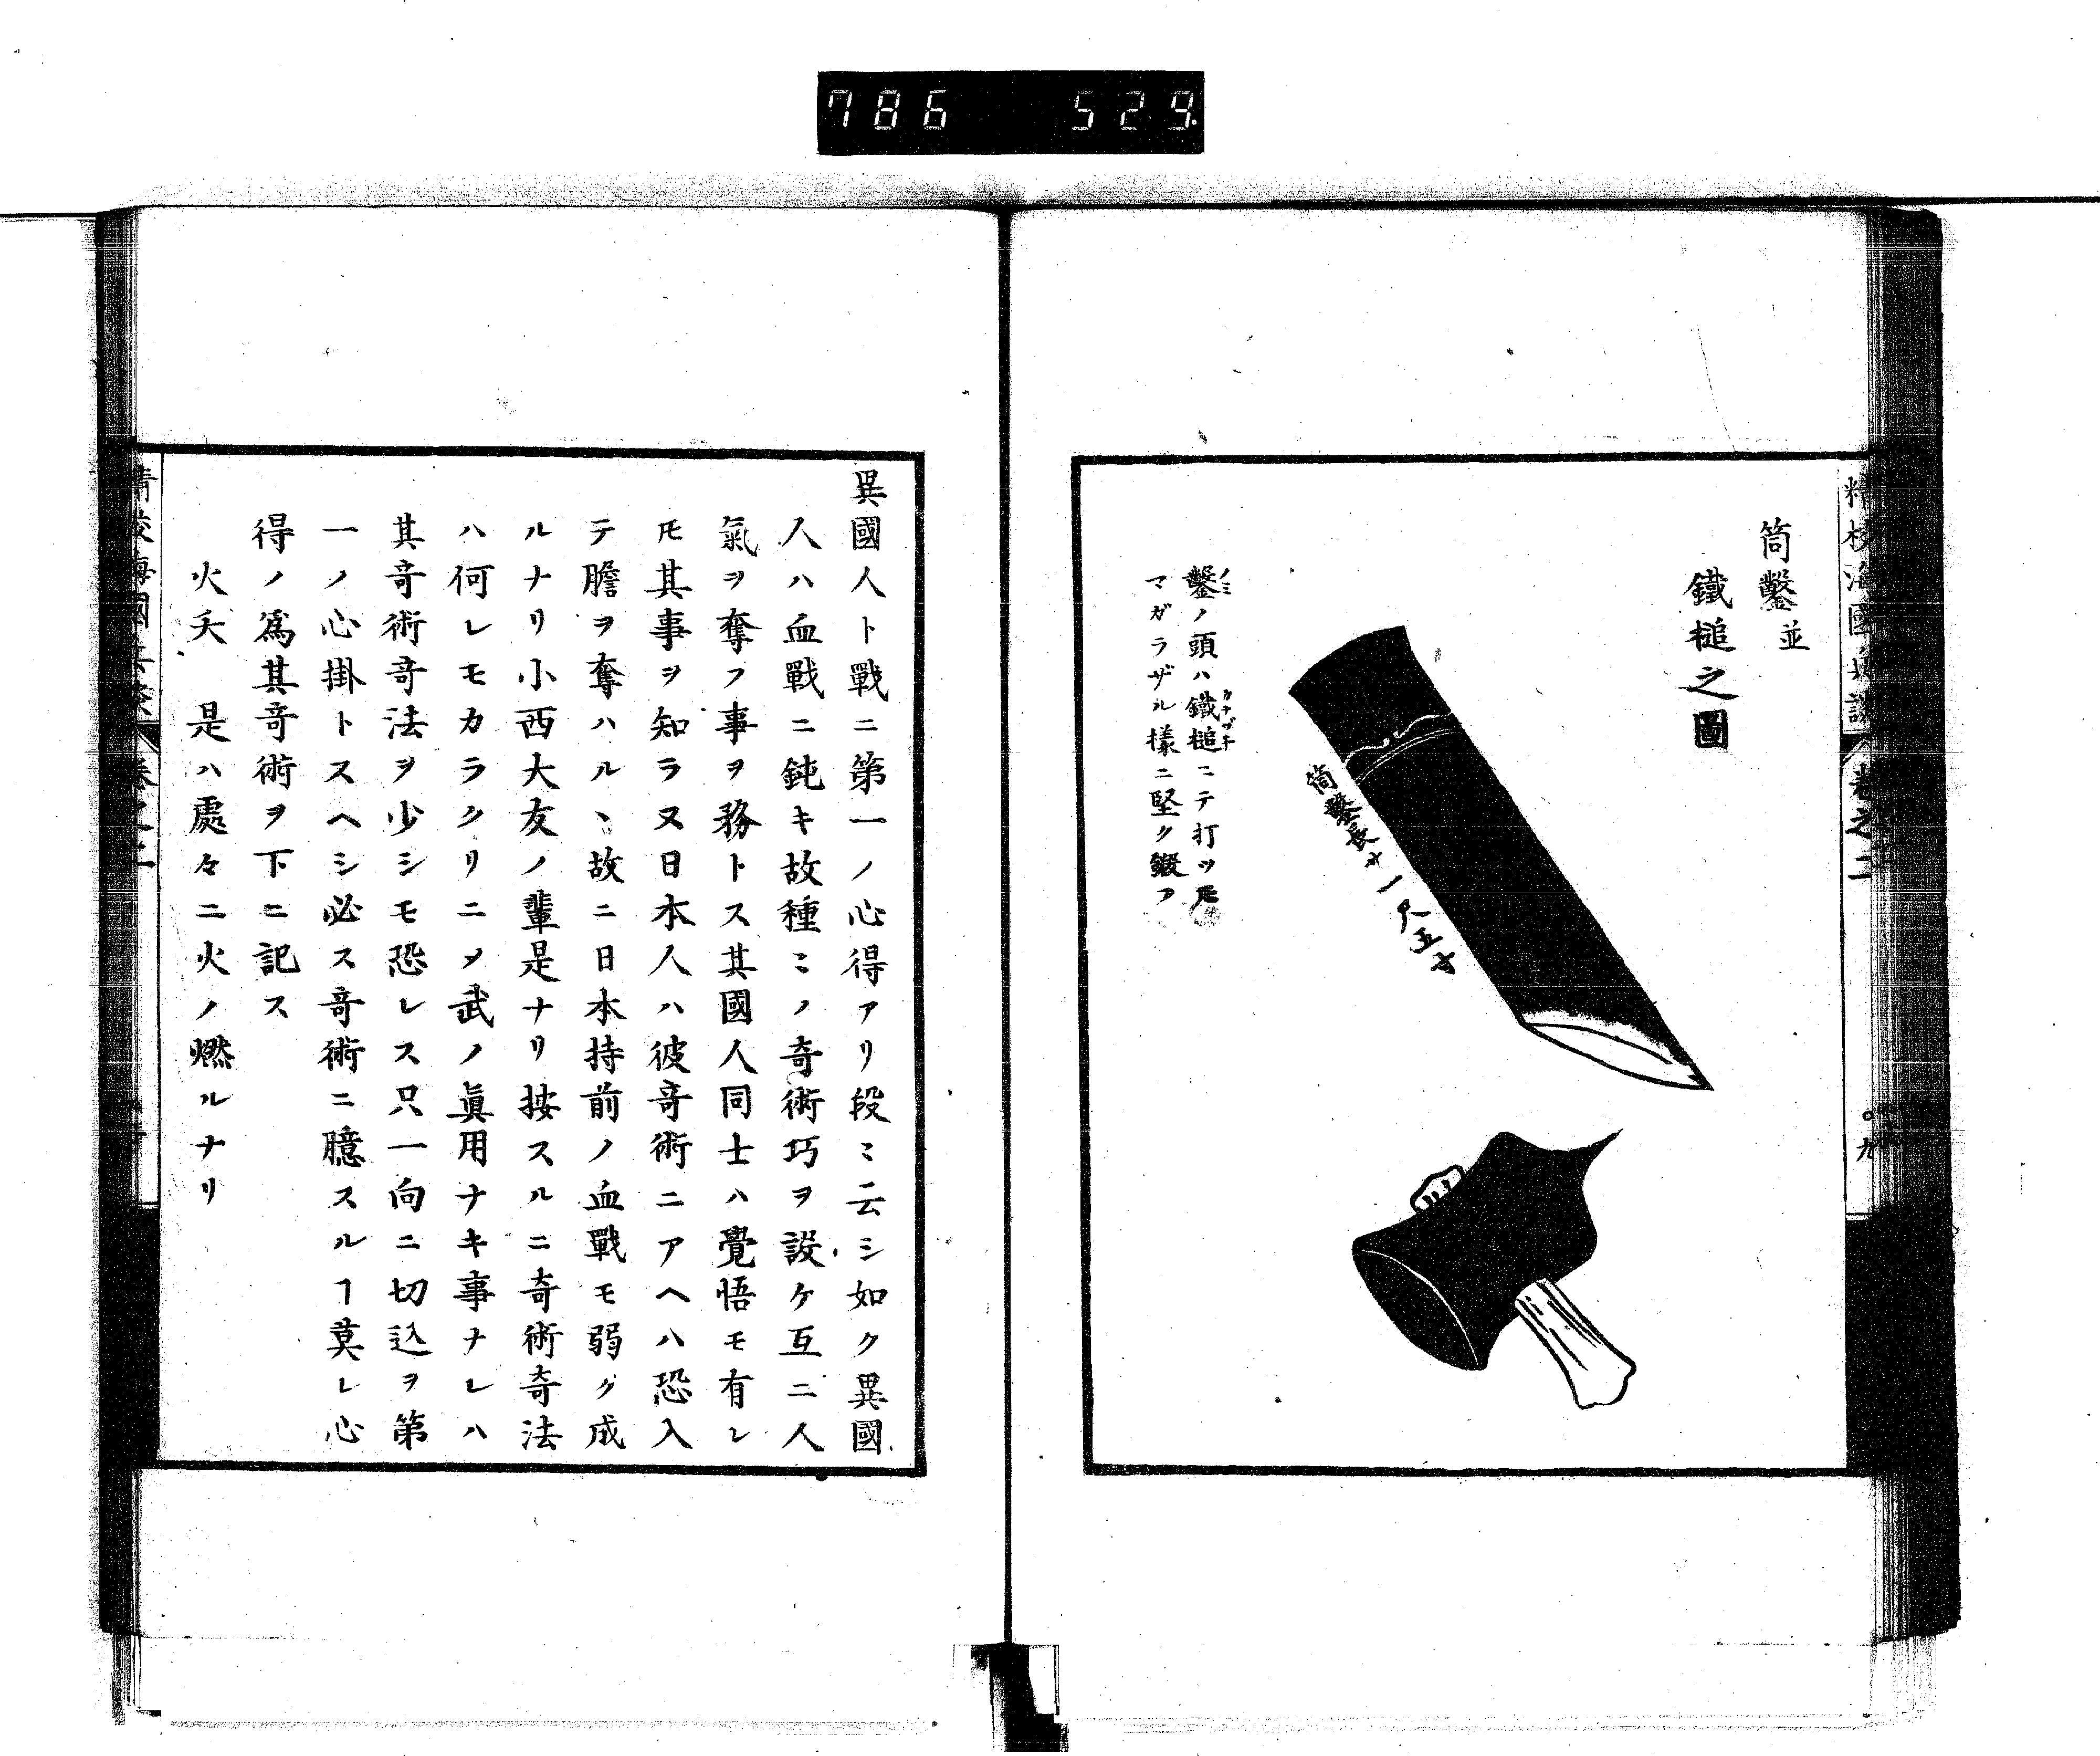 786 529.
精校海國兵談 卷之二
筒鑿並
鐵槌之圖
筒鑿長サ一尺五寸
鑿ノ頭ハ鐵槌ニテ打ツ𪜈
ノミ
カナヅチ
マガラザル樣ニ堅ク鍛フ
異國人ト戰ニ第一ノ心得アリ段〻云シ如ク異國
人ハ血戰ニ鈍キ故種〻ノ奇術巧ヲ設ケ互ニ人
氣ヲ奪フ事ヲ務トス其國人同士ハ覺悟モ有レ
𪜈其事ヲ知ラヌ日本人ハ彼竒術ニアヘハ恐入
テ膽ヲ奪ハルヽ故ニ日本持前ノ血戰モ弱ク成
ルナリ小西大友ノ輩是ナリ按スルニ奇術奇法
ハ何レモカラクリニ〆武ノ眞用ナキ事ナレハ
其竒術竒法ヲ少シモ恐レス只一向ニ切込ヲ第
一ノ心掛トスヘシ必ス竒術ニ臆スルヿ莫レ心
得ノ爲其竒術ヲ下ニ記ス
火夭 是ハ處々ニ火ノ燃ルナリ
精校海國兵談 卷之二